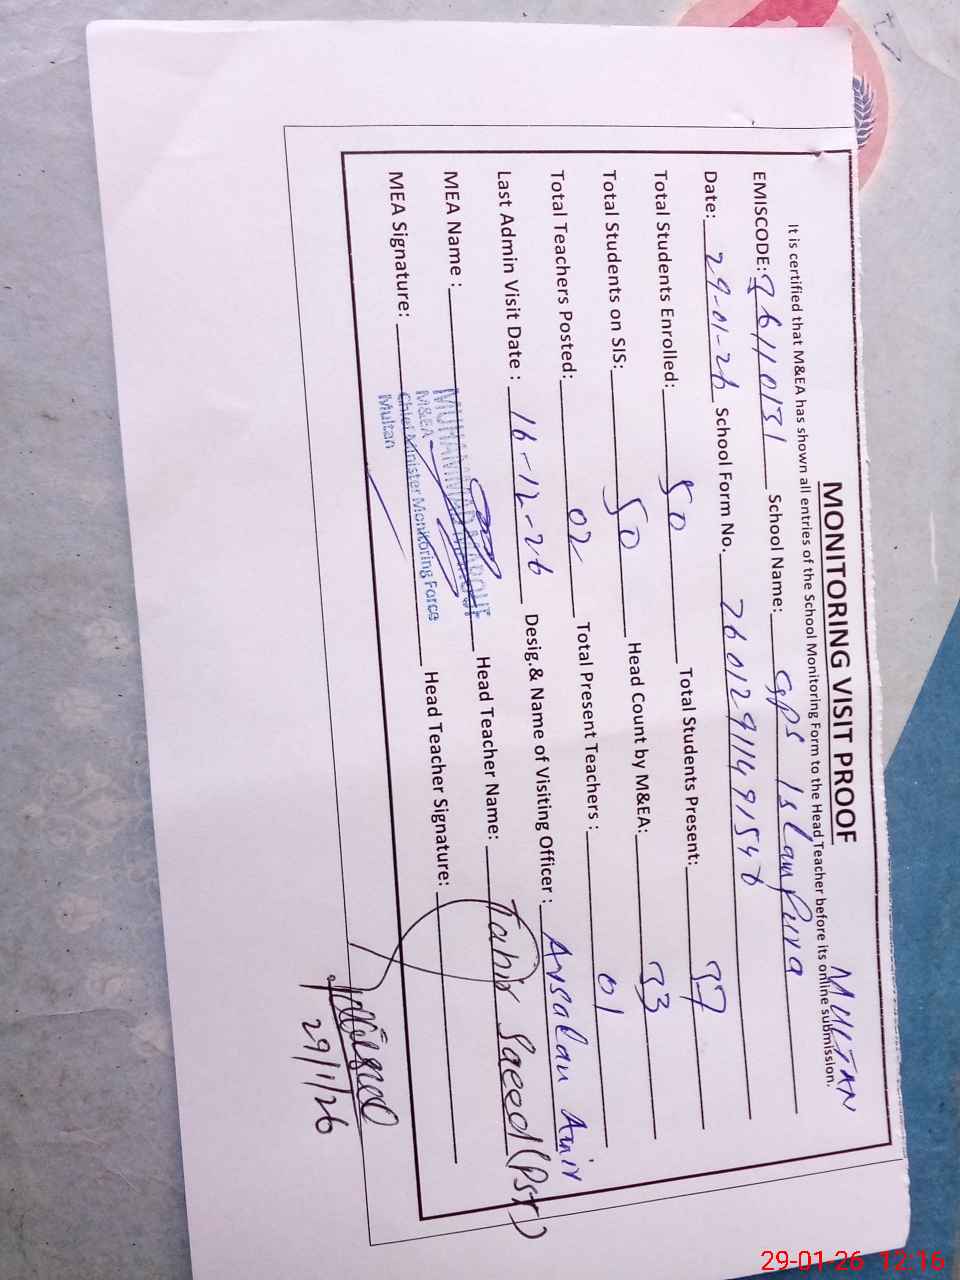 MONITORING VISIT PROOF MULTAN
It is certified that M&EA has shown all entries of the School Monitoring Form to the Head Teacher before its online submission.
EMISCODE: 36110131 School Name: GPS Islampura
Date: 29-01-26 School Form No. 26012911491546
Total Students Enrolled: 50 Total Students Present: 37
Total Students on SIS: 50 Head Count by M&EA: 33
Total Teachers Posted: 02 Total Present Teachers: 01
Last Admin Visit Date: 16-12-26 Desig.& Name of Visiting Officer: Arsalan Amir
MEA Name: MUHAMMAD Head Teacher Name: Tahir Saeed (PST)
M&EA
MEA Signature: Chief Minister Monitoring Force Head Teacher Signature:
Multan
29/1/26
29-01-26 12:16